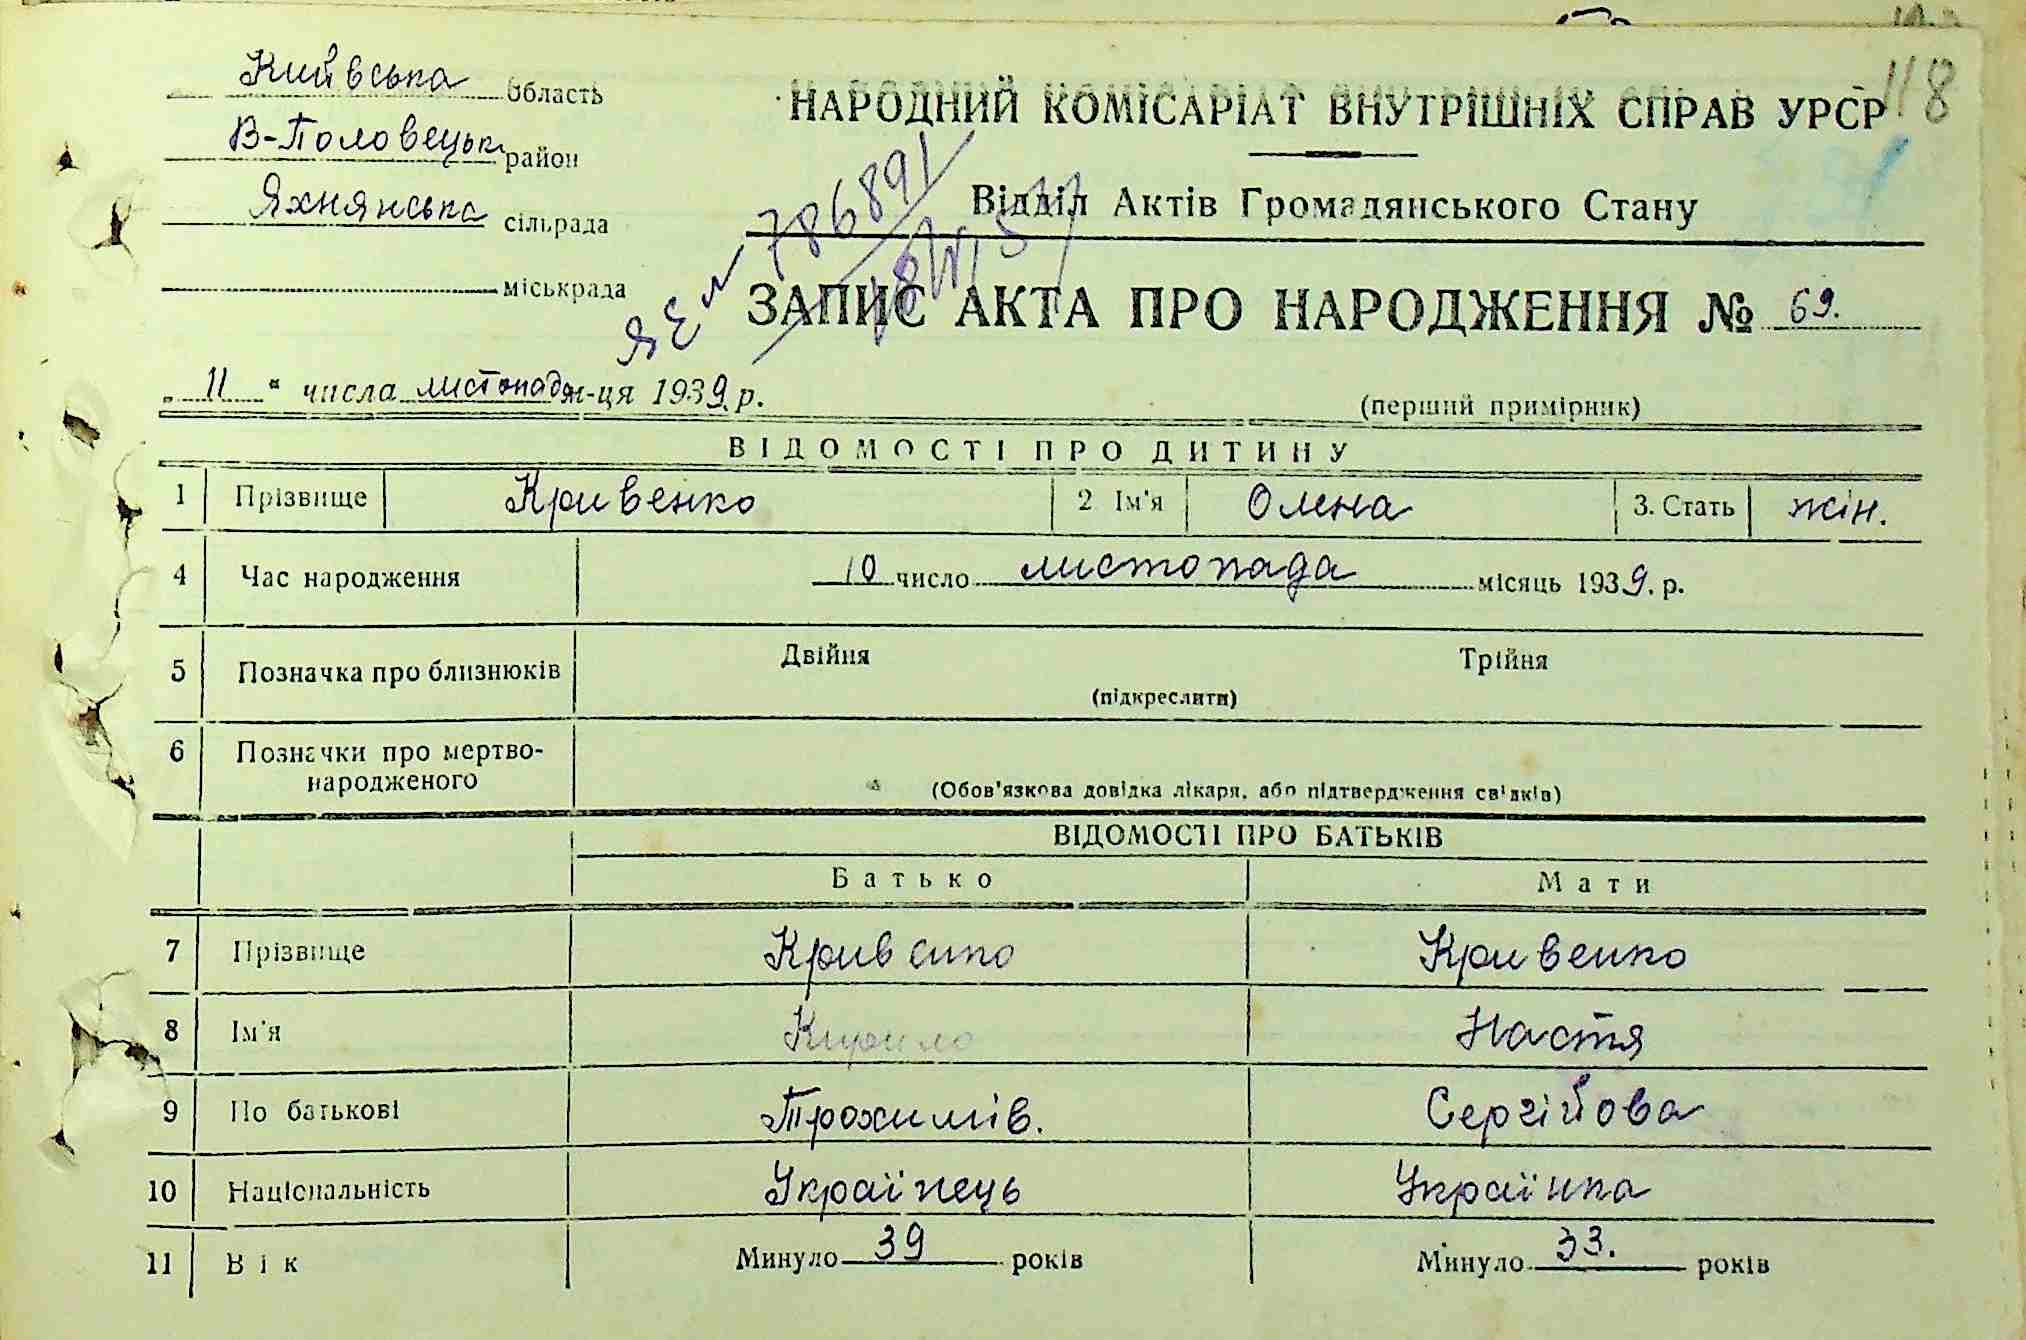 118
Київська область
В-Половецьк. район
Яхнянська сільрада
міськрада
НАРОДНИЙ КОМІСАРІАТ ВНУТРІШНІХ СПРАВ УРСР
Відділ Актів Громадянського Стану
786891
ЗАПИС АКТА ПРО НАРОДЖЕННЯ № 69.
„ 11 “ числа листопада м-ця 1939. р.
(перший примірник)
ВІДОМОСТІ ПРО ДИТИНУ
1 Прізвище Кривенко 2 Ім'я Олена 3. Стать жін.
4 Час народження 10 число листопада місяць 1939. р.
5 Позначка про близнюків Двійня Трійня
(підкреслити)
6 Позначки про мертво-
народженого
(Обов'язкова довідка лікаря, або підтвердження свідків)
ВІДОМОСТІ ПРО БАТЬКІВ
Батько Мати
7 Прізвище Кривенко Кривенко
8 Ім'я Кирило Настя
9 По батькові Трохимів. Сергійова
10 Національність Українець Українка
11 Вік Минуло 39 років Минуло 33. років